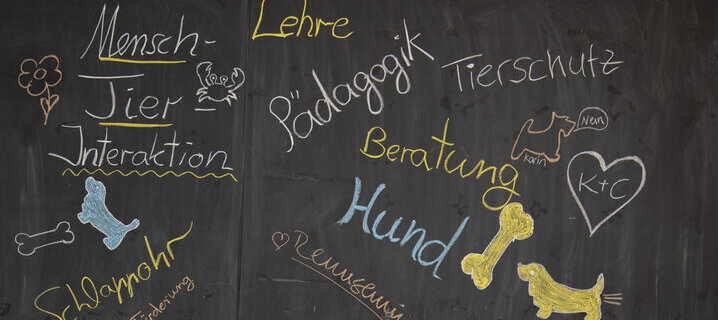 Mensch-
Tier -
Interaktion
Lehre
Pädagogik
Tierschutz
Beratung
Nein
Karin
K+C
Hund
Schlappohr
Förderung